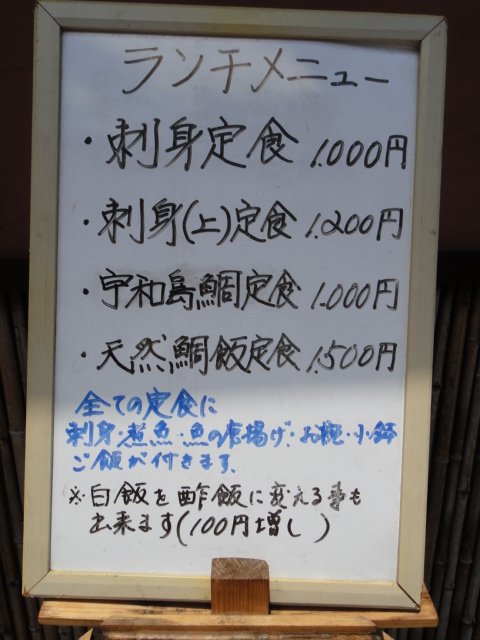 ランチメニュー
・刺身定食 1.000円
・刺身(上)定食 1.200円
・宇和島鯛定食 1.000円
・天然鯛飯定食 1.500円
全ての定食に
刺身・煮魚・魚の唐揚げ・お椀・小鉢
ご飯が付きます。
※白飯を酢飯に変える事も
出来ます(100円増し)